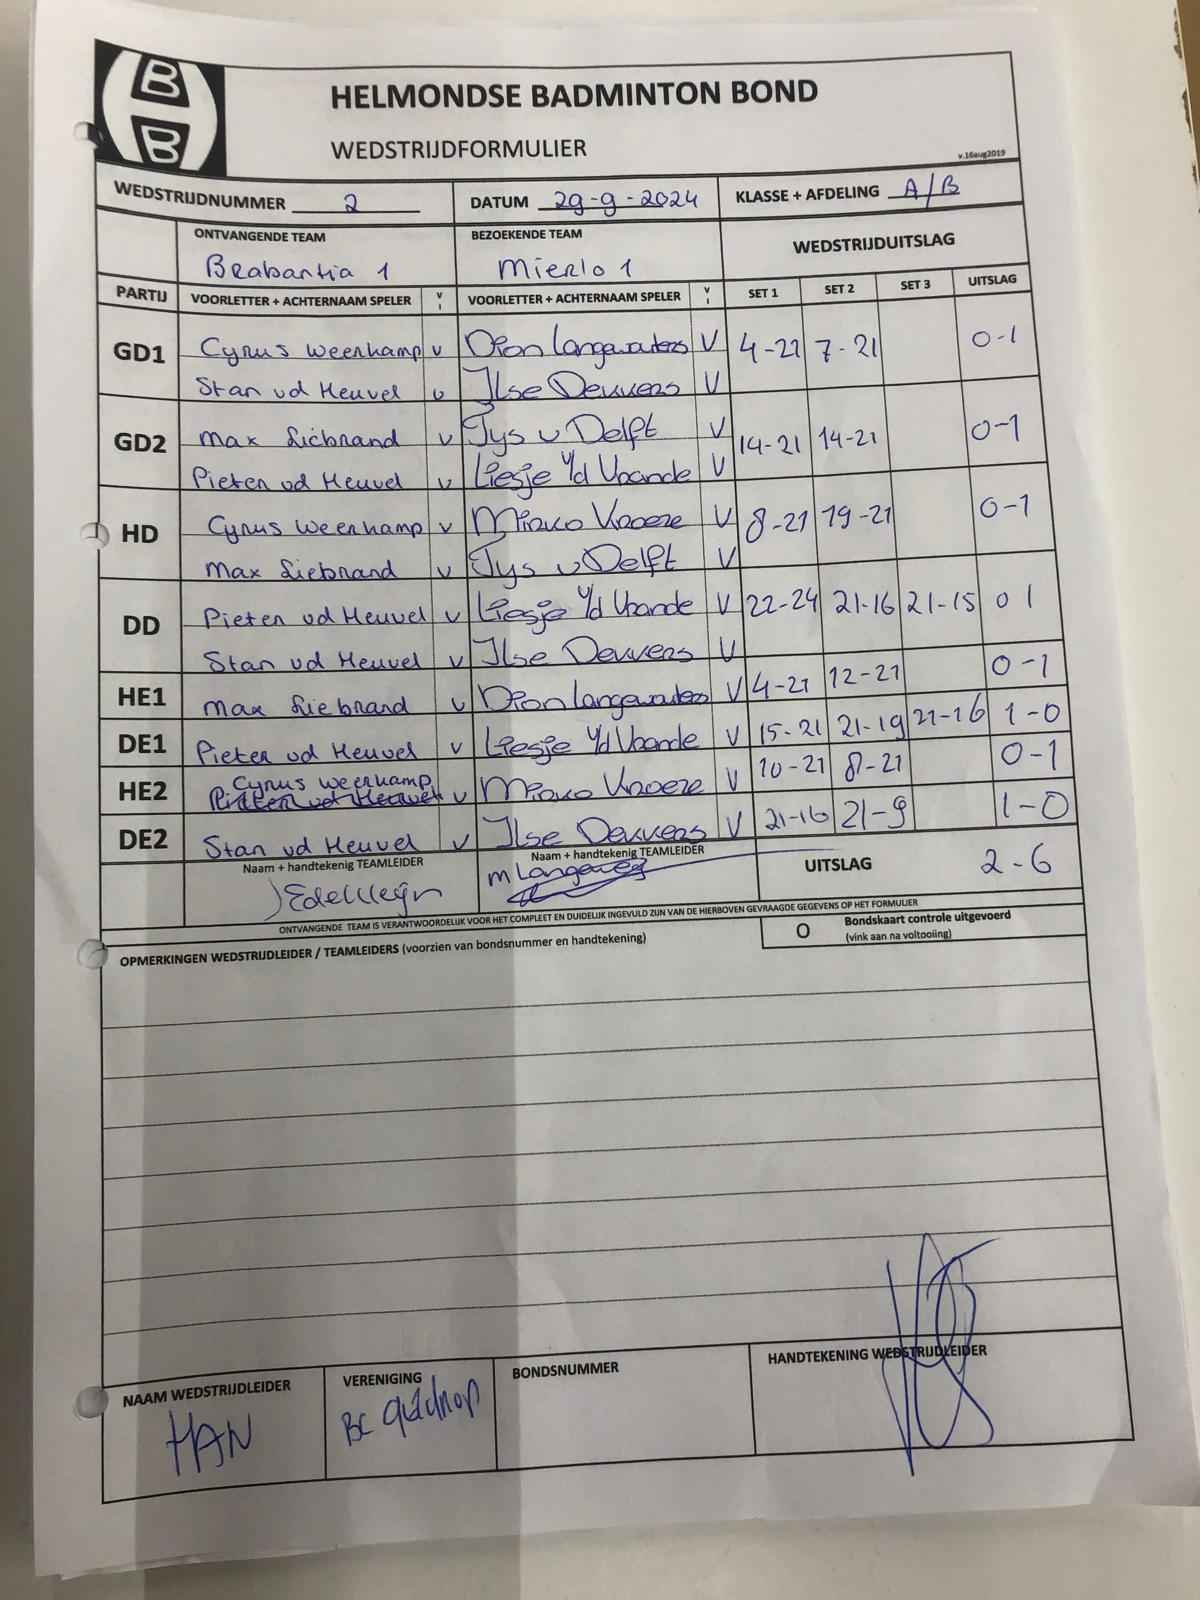 B
B
HELMONDSE BADMINTON BOND
WEDSTRIJDFORMULIER
v.16aug2019
WEDSTRIJDNUMMER 2 DATUM 29-9-2024 KLASSE + AFDELING A/B
ONTVANGENDE TEAM BEZOEKENDE TEAM WEDSTRIJDUITSLAG
Brabantia 1 Mierlo 1
PARTIJ VOORLETTER + ACHTERNAAM SPELER V I VOORLETTER + ACHTERNAAM SPELER V I SET 1 SET 2 SET 3 UITSLAG
GD1 Cyrus Weerkamp v Dion Langewouters V 4-21 7-21 0-1
Stan vd Heuvel v Ilse Devvers V
GD2 Max Siebrand v Tys v Delft V 14-21 14-21 0-1
Pieter vd Heuvel v Liesje v/d Vbande V
HD Cyrus Weerkamp v Mirko Knoeze V 8-21 19-21 0-1
Max Siebrand v Tys v Delft V
DD Pieter vd Heuvel v Liesje v/d Vbande V 22-24 21-16 21-15 0 1
Stan vd Heuvel v Ilse Devvers V
HE1 Max Siebrand v Dion Langewouters V 4-21 12-21 0-1
DE1 Pieter vd Heuvel v Liesje v/d Vbande V 15-21 21-19 21-16 1-0
HE2 Cyrus Weerkamp v Mirko Knoeze V 10-21 8-21 0-1
Pieter vd Heuvel
DE2 Stan vd Heuvel v Ilse Devvers V 21-16 21-9 1-0
Naam + handtekenig TEAMLEIDER Naam + handtekenig TEAMLEIDER UITSLAG 2-6
J Edelkleijn M Langeweg
ONTVANGENDE TEAM IS VERANTWOORDELIJK VOOR HET COMPLEET EN DUIDELIJK INGEVULD ZIJN VAN DE HIERBOVEN GEVRAAGDE GEGEVENS OP HET FORMULIER
OPMERKINGEN WEDSTRIJDLEIDER / TEAMLEIDERS (voorzien van bondsnummer en handtekening)
O Bondskaart controle uitgevoerd
(vink aan na voltooiing)
NAAM WEDSTRIJDLEIDER VERENIGING BONDSNUMMER HANDTEKENING WEDSTRIJDLEIDER
HAN BC